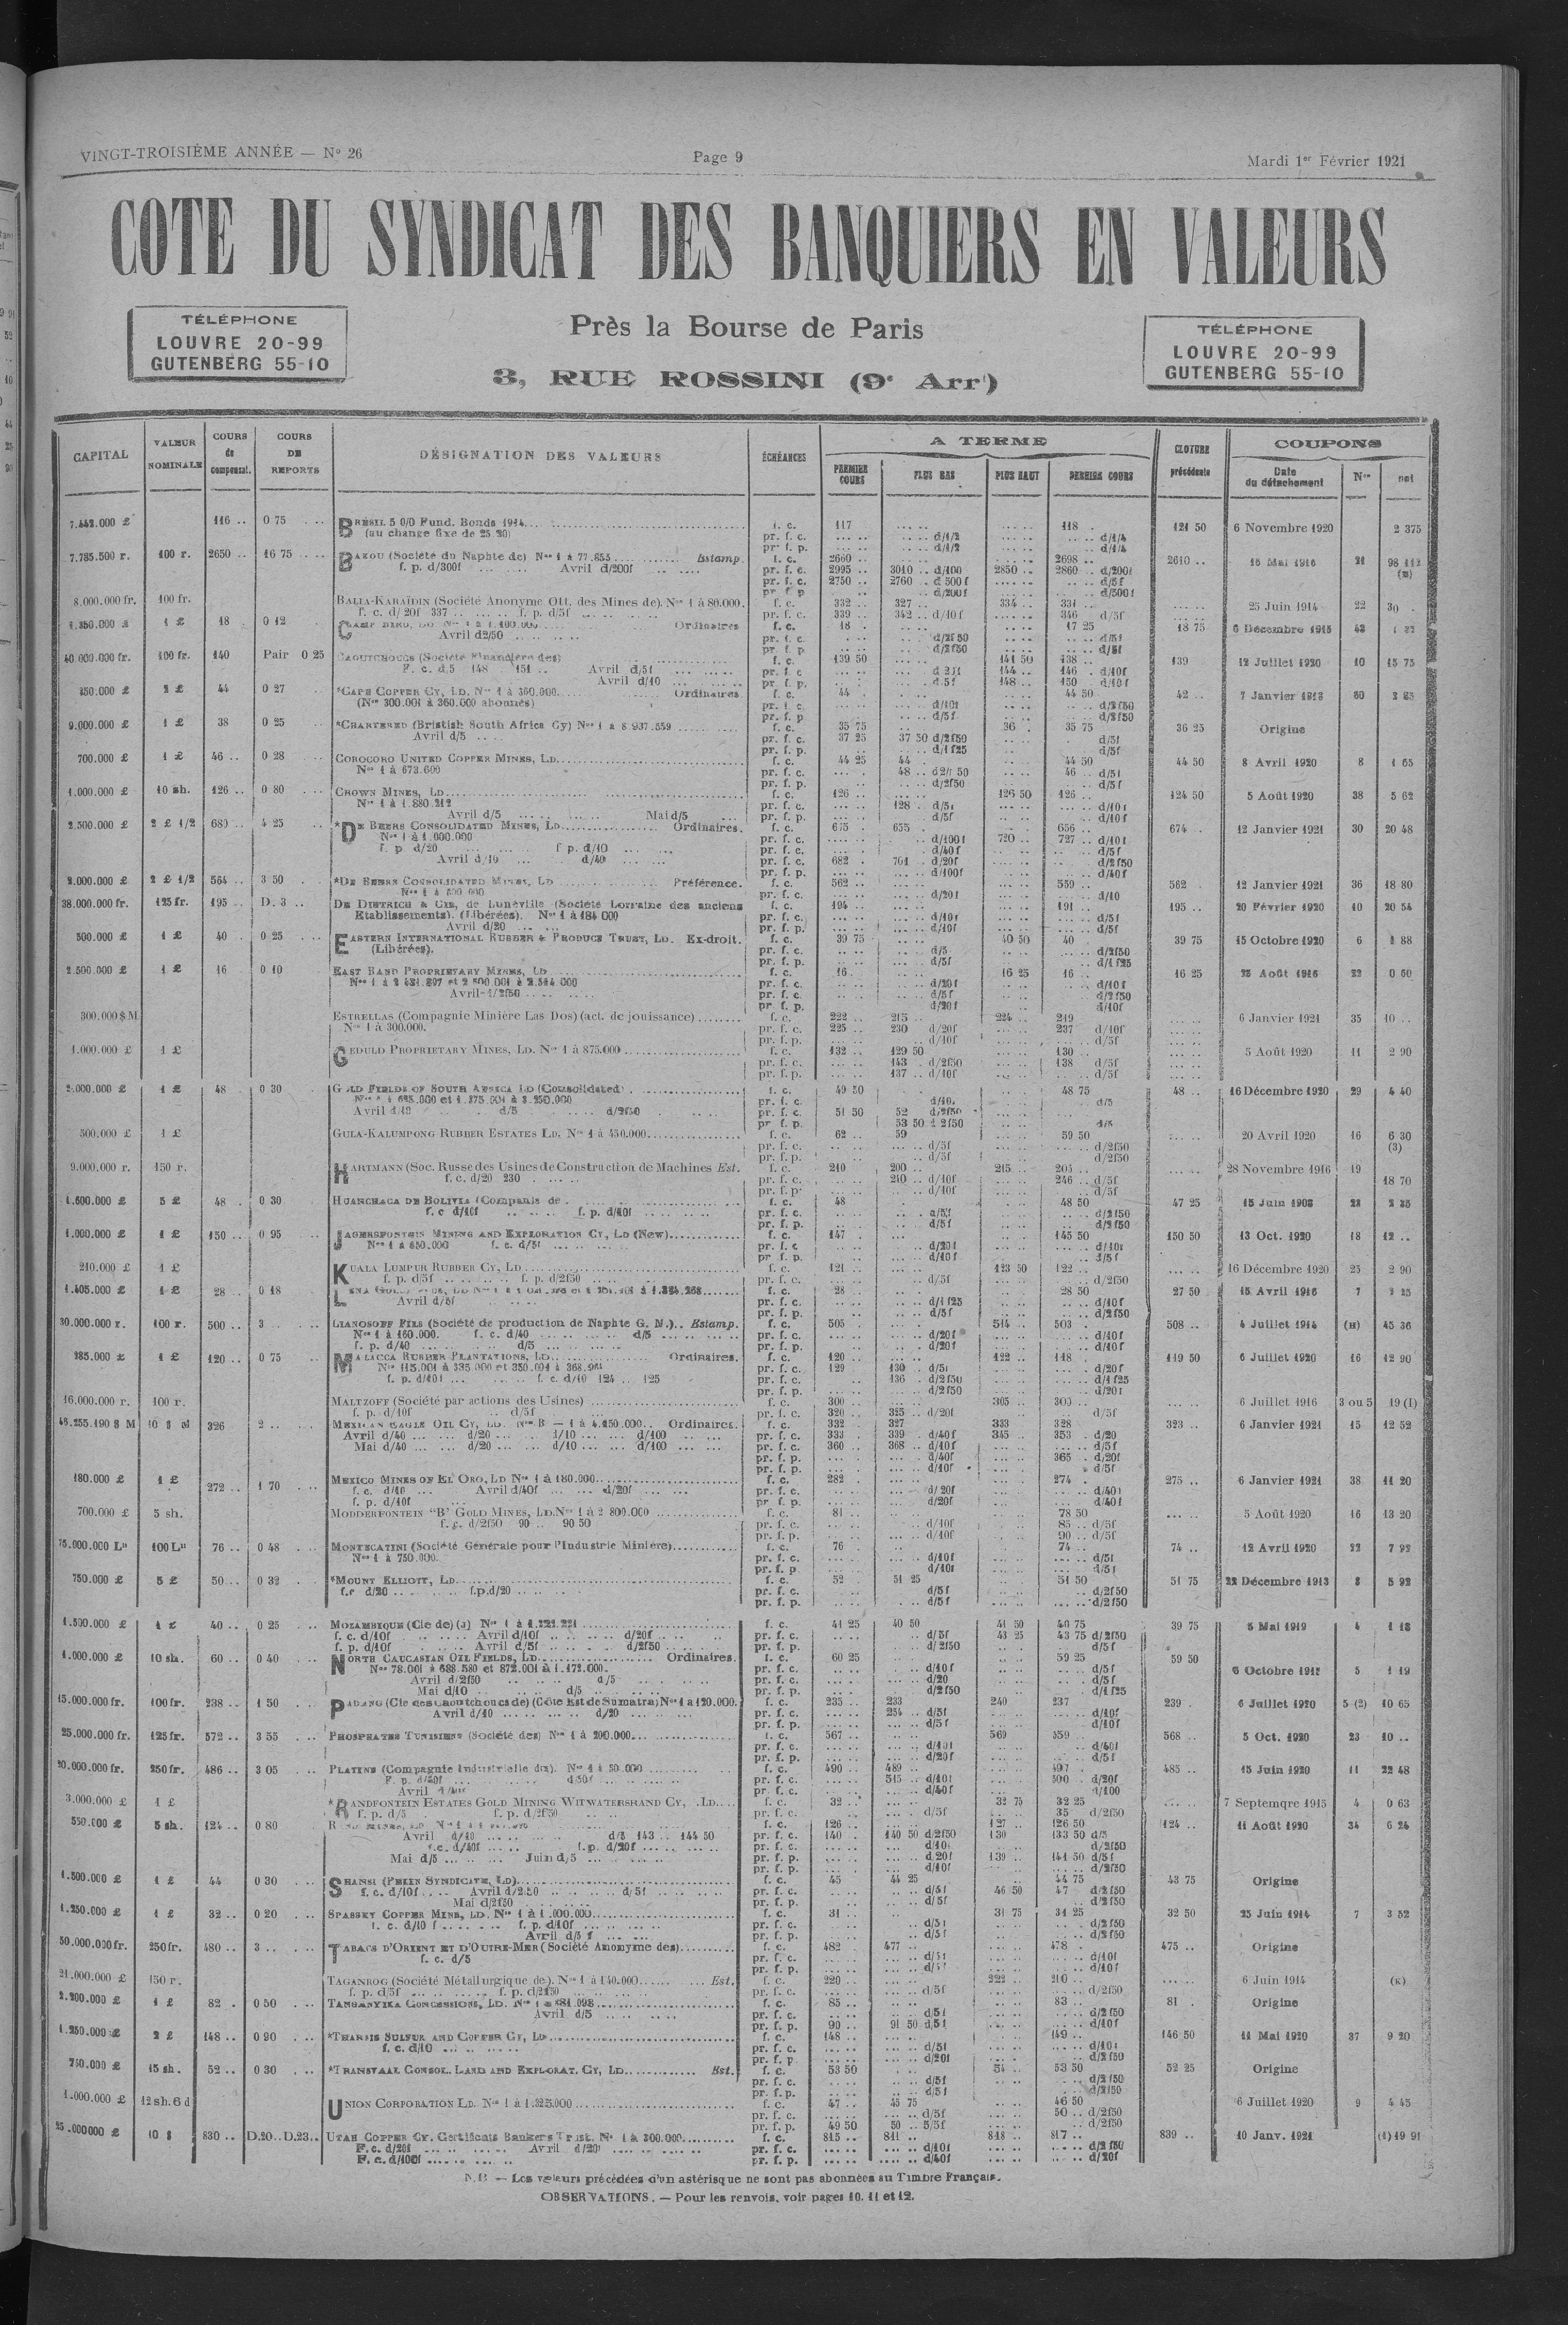 VINGT-TROISIÈME ANNÉE — N° 26 Page 9 Mardi 1er Février 1921
COTE DU SYNDICAT DES BANQUIERS EN VALEURS
TÉLÉPHONE
LOUVRE 20-99
GUTENBERG 55-10
Près la Bourse de Paris
3, RUE ROSSINI (9e Arrt)
TÉLÉPHONE
LOUVRE 20-99
GUTENBERG 55-10
CAPITAL VALEUR NOMINALE COURS de compensat. COURS DE REPORTS DÉSIGNATION DES VALEURS ÉCHÉANCES A TERME PREMIER COURS PLUS BAS PLUS HAUT DERNIER COURS CLOTURE précédente COUPONS Date du détachement Nos net
7.442.000 £ 116 .. 0 75 BRÉSIL 5 0/0 Fund. Bonds 1914 f. c. 117 118 121 50 6 Novembre 1920 2 375
(au change fixe de 25.20) pr. f. c. d/1/2 d/1/4
pr. f. p. d/1/2 d/1/4
7.785.500 r. 100 r. 2650 .. 16 75 BAKOU (Société du Naphte de) Nos 1 à 77.855 Estamp. f. c. 2660 .. 2698 .. 2610 .. 16 Mai 1916 21
f. p. d/300f Avril d/200f pr. f. c. 2995 .. 3010 .. d/100 2850 .. 2860 .. d/200f
pr. f. c. 2750 .. 2760 .. d 500f d/5f
pr. f. p. d/200f d/500f
8.000.000 fr. 100 fr. BALIA-KARAÏDIN (Société Anonyme Ott. des Mines de). Nos 1 à 80.000. f. c. 332 .. 327 .. 334 .. 331 .. 25 Juin 1914 22 30 .
f. c. d/20f 337 .. f. p. d/5f pr. f. c. 339 .. 342 .. d/10f 346 d/5f
1 £ 18 0 12 CAMP BIRD, LD Ordinaires f. c. 18 17 25 18 75 6 Décembre 1915
Avril d2/50 pr. f. c. d/2f50 d/5f
pr. f. p. d/2f50 d/5f
40.000.000 fr. 100 fr. 140 Pair 0 25 CAOUTCHOUCS (Société Financière des) f. c. 139 50 141 50 138 .. 139 12 Juillet 1920 10 15 75
F. c. d.5 148 151 .. Avril d/5f pr. f. c. 144 .. 146 . d/10f
Avril d/10 pr. f. p. d 5f 148 .. 150 . d/10f
350.000 £ 2 £ 44 0 27 *CAPE COPPER CY, LD. Nos 1 à 360.000 Ordinaires f. c. 44 44 50 42 .. 7 Janvier 1913
(Nos 300.001 à 360.000 abonnés) pr. f. c. d/10f d/2f50
pr. f. p. d/5f d/2f50
9.000.000 £ 1 £ 38 0 25 *CHARTERED (Bristish South Africa Cy) Nos 1 à 8 937.559 f. c. 35 75 36 . 35 75 36 25 Origine
Avril d/5 pr. f. c. 37 25 37 50 d/2f50 d/5f
pr. f. p. d/1f25 d/5f
700.000 £ 1 £ 46 .. 0 28 COROCORO UNITED COPPER MINES, LD f. c. 44 25 44 . 44 50 44 50 8 Avril 1920 8 1 65
Nos 1 à 673.600 pr. f. c. 48 .. 46 .. d/5f
pr. f. p. d/2f50 d/5f
1.000.000 £ 10 sh. 126 .. 0 80 CROWN MINES, LD f. c. 126 .. 126 50 126 .. 124 50 5 Août 1920 38 5 62
Nos 1 à 1.880.212 pr. f. c. 128 .. d/5f d/10f
Avril d/5 Mai d/5 pr. f. p. d/5f d/10f
2.500.000 £ 2 £ 1/2 680 .. 4 25 *DE BEERS CONSOLIDATED MINES, LD Ordinaires. f. c. 675 655 656 .. 674 . 12 Janvier 1921 30 20 48
Nos 1 à 1.000.000 pr. f. c. d/100f 720 .. 727 .. d/10f
f. p. d/20 f p. d/10 pr. f. c. d/40f d/5f
Avril d/10 d/40 pr. f. c. 682 . 701 . d/20f d/2f50
pr. f. p. d/100f d/40f
2.000.000 £ 2 £ 1/2 564 .. 3 50 *DE BEERS CONSOLIDATED MINES, LD Préférence. f. c. 562 .. 559 .. 562 . 12 Janvier 1921 36 18 80
Nos 1 à 800 000 pr. f. c. d/20f d/10
38.000.000 fr. 125 fr. 195 .. D. 3 .. DE DIETRICH & CIE, de Lunéville (Société Lorraine des anciens f. c. 194 .. 191 .. 195 .. 20 Février 1920 10 20 54
Etablissements). (Libérées). Nos 1 à 184 000 pr. f. c. d/10f d/5f
Avril d/20 pr. f. p. d/10f d/5f
500.000 £ 1 £ 40 0 25 EASTERN INTERNATIONAL RUBBER & PRODUCE TRUST, LD. Ex-droit. f. c. 39 75 40 50 40 39 75 15 Octobre 1920 6 1 88
(Libérées). pr. f. c. d/5 d/2f50
pr. f. p. d/5f d/1f25
2.500.000 £ 1 £ 16 0 10 EAST RAND PROPRIETARY MINES, LD f. c. 16 16 25 16 .. 16 25 25 Août 1916 22 0 60
pr. f. c. d/20f d/10f
Avril-1/2f50 pr. f. c. d/5f d/2f50
pr. f. p. d/20f d/10f
300.000 $ M. ESTRELLAS (Compagnie Minière Las Dos) (act. de jouissance) f. c. 222 .. 215 .. 224 .. 219 6 Janvier 1921 35 10 ..
Nos 1 à 300.000. pr. f. c. 225 .. 230 d/20f 237 d/10f
pr. f. p. d/10f d/5f
1.000.000 £ 1 £ GEDULD PROPRIETARY MINES, LD. Nos 1 à 875.000 f. c. 132 .. 129 50 130 .. 5 Août 1920 11 2 90
pr. f. c. 143 .. d/2f50 138 d/5f
pr. f. p. 137 .. d/10f d/5f
2.000.000 £ 1 £ 48 . 0 30 GOLD FIELDS OF SOUTH AFRICA LD (Consolidated) f. c. 49 50 48 75 48 .. 16 Décembre 1920 29 4 40
pr. f. c. d/10. d/5
Avril d/10 d/5 d/2f50 pr. f. c. 51 50 52 d/2f50
pr. f. p. 53 50 d/5
500.000 £ 1 £ GULA-KALUMPONG RUBBER ESTATES LD. Nos 1 à 450.000 f. c. 62 .. 59 59 50 20 Avril 1920 16 6 30
pr. f. c. d/5f d/2f50 (3)
pr. f. p. d/5f d/2f50
9.000.000 r. 150 r. HARTMANN (Soc. Russe des Usines de Construction de Machines Est. f. c. 210 200 .. 215 .. 205 .. 28 Novembre 1916 19
f. c. d/20 230 pr. f. c. 210 .. d/10f 246 .. d/5f 18 70
pr. f. p. d/10f d/5f
1.600.000 £ 5 £ 48 . 0 30 HUANCHACA DE BOLIVIA (Companie de f. c. 48 48 50 47 25 15 Juin 1908
f. c d/10f f. p. d/10f pr. f. c. d/5f d/2f50
pr. f. p. d/5f d/2f50
1.000.000 £ 1 £ 150 .. 0 95 JAGERSFONTEIN MINING AND EXPLORATION CY, LD (New) f. c. 147 . 145 50 150 50 13 Oct. 1920 18 12 ..
f. c. d/5f pr. f. c d/20f d/10f
pr. f. p. d/10f d/5f
210.000 £ 1 £ KUALA LUMPUR RUBBER CY, LD f. c. 121 .. 123 50 122 .. 16 Décembre 1920 25 2 90
f. p. d/5f f. p. d/2f50 pr. f. c. d/5f d/2f50
1.405.000 £ 1 £ 28 .. 0 18 f. c. 28 28 50 27 50 15 Avril 1916 7
Avril d/5f pr. f. c. d/1f25 d/10f
pr. f. p. d/5f d/2f50
30.000.000 r. 100 r. 500 .. 3 .. LIANOSOFF FILS (Société de production de Naphte G. M.) Estamp. f. c. 505 .. 514 .. 503 . 508 .. 4 Juillet 1914 (H) 45 36
Nos 1 à 160.000. f. c. d/40 d/5 pr. f. c. d/20f d/10f
f. p. d/40 d/5 pr. f. p. d/20f d/10f
385.000 £ 1 £ 120 .. 0 75 MALACCA RUBBER PLANTATIONS, LD Ordinaires. f. c. 120 .. 122 .. 118 . 119 50 6 Juillet 1920 16 12 90
pr. f. c. 129 130 . d/5f d/20f
f. p. d/10f f. c. d/10 124 .. 125 pr. f. c. 136 .. d/2f50 d/1f25
pr. f. p. d/2f50 d/20f
16.000.000 r. 100 r. MALTZOFF (Société par actions des Usines) f. c. 300 .. 305 .. 300 .. 6 Juillet 1916 3 ou 5 19 (I)
f. p. d/10f d/5f pr. f. c. 320 .. 325 .. d/20f d/5f
10 $ M 326 2 .. MEXICAN EAGLE OIL CY, LD. Ordinaires. f. c. 332 .. 327 333 328 323 .. 6 Janvier 1921 15 12 52
Avril d/40 d/20 d/10 d/100 pr. f. c. 333 . 339 . d/40f 345 353 . d/20
Mai d/40 d/20 d/10 d/100 pr. f. c. 360 .. 368 .. d/10f d/5f
pr. f. p. d/40f 365 . d/20f
pr. f. p. d/10f d/5f
180.000 £ 1 £ 272 .. 1 70 MEXICO MINES OF EL ORO, LD Nos 1 à 180.000 f. c. 282 .. 274 . 275 .. 6 Janvier 1921 38 11 20
f. c. d/10 Avril d/40f d/20f pr. f. c. d/20f d/40f
f. p. d/10f pr. f. p. d/20f d/40f
700.000 £ 5 sh. MODDERFONTEIN "B" GOLD MINES, LD. Nos 1 à 2 800.000 f. c. 81 .. 78 50 5 Août 1920 16 13 20
f. c. d/2f50 90 .. 90 50 pr. f. c. d/10f 85 .. d/5f
pr. f. p. d/10f 90 .. d/5f
75.000.000 Lit 100 Lit 76 .. 0 48 MONTECATINI (Société Générale pour l'Industrie Minière) f. c. 76 .. 74 .. 74 .. 12 Avril 1920 22 7 92
Nos 1 à 750.000. pr. f. c. d/10f d/5f
pr. f. p. d/10f d/5f
750.000 £ 5 £ 50 .. 0 32 *MOUNT ELLIOTT, LD f. c. 52 51 25 51 50 51 75 22 Décembre 1913 8 5 92
f.c d/20 f.p.d/20 pr. f. c. d/5f d/2f50
pr. f. p. d/5f d/2f50
1.500.000 £ 1 £ 40 .. 0 25 MOZAMBIQUE (Cie de) (J) f. c. 41 25 40 50 41 50 40 75 39 75 5 Mai 1919 4 1 18
f. c. d/10f Avril d/10f d/20f pr. f. c. d/5f 43 25 43 75 d/2f50
f. p. d/10f Avril d/5f d/2f50 pr. f. p. d/2f50 d/5f
1.000.000 £ 10 sh. 60 .. 0 40 NORTH CAUCASIAN OIL FIELDS, LD Ordinaires. f. c. 60 25 59 25 59 50
Nos 78.001 à 688.580 et 872.001 à 1.172.000. pr. f. c. d/10f d/5f 5 1 19
Avril d/2f50 d/5 pr. f. c. d/20 d/5f
Mai d/10 d/5 pr. f. p. d/2f50 d/1f25
15.000.000 fr. 100 fr. 238 .. 1 50 PADANG (Cie des Caoutchoucs de) (Côte Est de Sumatra) Nos 1 à 120.000. f. c. 235 .. 233 240 237 239 . 6 Juillet 1920 5 (2) 10 65
Avril d/10 d/20 pr. f. c. 254 .. d/5f d/10f
pr. f. p. d/5f d/10f
25.000.000 fr. 125 fr. 572 .. 3 55 PHOSPHATES TUNISIENS (Société des) Nos 1 à 200.000 f. c. 567 .. 569 559 .. 568 .. 5 Oct. 1920 23 10 ..
pr. f. c. d/10f d/40f
pr. f. p. d/20f d/5f
20.000.000 fr. 250 fr. 486 .. 3 05 PLATINE (Compagnie Industrielle du). f. c. 490 .. 489 .. 497 . 485 .. 15 Juin 1920 11 22 48
F. p. d/20f d/50f pr. f. c. 515 .. d/10f 500 . d/20f
Avril pr. f. c. d/40f d/100
3.000.000 £ 1 £ *RANDFONTEIN ESTATES GOLD MINING WITWATERSRAND CY, LD f. c. 32 .. 32 75 32 25 7 Septemqre 1915 4 0 63
f. p. d/5 f. p. d/2f50 pr. f. c. d/5f 35 d/2f50
550.000 £ 5 sh. 124 .. 0 80 RAND MINES, LD f. c. 126 .. 127 .. 126 50 124 .. 11 Août 1920 34 6 24
Avril d/10 d/5 143 .. 144 50 pr. f. c. 140 . 140 50 d/2f50 130 133 50 d/5
f.c. d/40f f.p. d/20f pr. f. c. d/10f d/2f50
Mai d/5 Juin d/5 pr. f. p. d 20f 139 .. 141 50 d/5f
pr. f. p. d/10f d/2f50
1.500.000 £ 1 £ 44 0 30 SHANSI (PEKIN SYNDICATE, LD) f. c. 45 44 25 44 75 43 75 Origine
f. c. d/10f Avril d/2.50 d/5f pr. f. c. d/5f 46 50 47 d/2f50
Mai d/2f50 pr. f. p. d/5f d/2f50
1.250.000 £ 1 £ 32 .. 0 20 SPASSKY COPPER MINE, LD. Nos 1 à 1.000.000 f. c. 31 .. 31 75 31 25 32 50 25 Juin 1914 7 3 52
f. c. d/10 f f. p. d/10f pr. f. c. d/5f d/2f50
Avril d/5 f pr. f. p. d/5f d/2f50
50.000.000 fr. 250 fr. 480 .. 3 .. TABACS D'ORIENT ET D'OUTRE-MER (Société Anonyme des) f. c. 482 477 .. 478 . 475 .. Origine
f. c. d/5 pr. f. c. d/5f d/10f
pr. f. p. d/5f d/10f
21.000.000 £ 150 r. TAGANROG (Société Métallurgique de). Nos 1 à 140.000 Est. f. c. 220 .. 222 .. 210 .. 6 Juin 1914 (K)
f. p. d/5f f. p. d/2f50 pr. f. c. d/5f d/2f50
1 £ 82 . 0 50 TANGANYIKA CONCESSIONS, LD. f. c. 85 .. 83 .. 81 . Origine
Avril d/5 pr. f. c. d/5f d/2f50
pr. f. p. 90 .. 91 50 d/5f d/10f
1.250.000 £ 2 £ 148 .. 0 90 *THARSIS SULFUR AND COPPER CY, LD f. c. 148 .. 149 .. 146 50 11 Mai 1920 37 9 20
f. c. d/10 pr. f. c. d/5f d/10f
pr. f. p d/20f d/2f50
750.000 £ 15 sh. 52 .. 0 30 *TRANSVAAL CONSOL. LAND AND EXPLORAT. CY, LD Est. f. c. 53 50 54 .. 53 50 52 25 Origine
pr. f. c. d/5f d/2f50
pr. f. p. d/5f d/2f50
1.000.000 £ 12 sh. 6 d UNION CORPORATION LD. Nos 1 à 1.325.000 f. c. 47 .. 45 75 46 50 6 Juillet 1920 9 4 45
pr. f. c. d/5f 50 .. d/2f50
pr. f. p. 49 50 50 .. 5/5f d/2f50
25.000000 £ 10 $ 830 .. D.20..D.23.. UTAH COPPER CY. Certificats Bankers Trust. Nos 1 à 300.000 f. c. 815 .. 811 .. 818 .. 817 .. 839 .. 10 Janv. 1921 (1) 19 91
F. c. d/20f Avril d/20f pr. f. c. d/10f d/2f50
F. c. d/100f pr. f. p. d/40f d/20f
N.B — Les valeurs précédées d'un astérisque ne sont pas abonnées au Timbre Français.
OBSERVATIONS. — Pour les renvois, voir pages 10. 11 et 12.